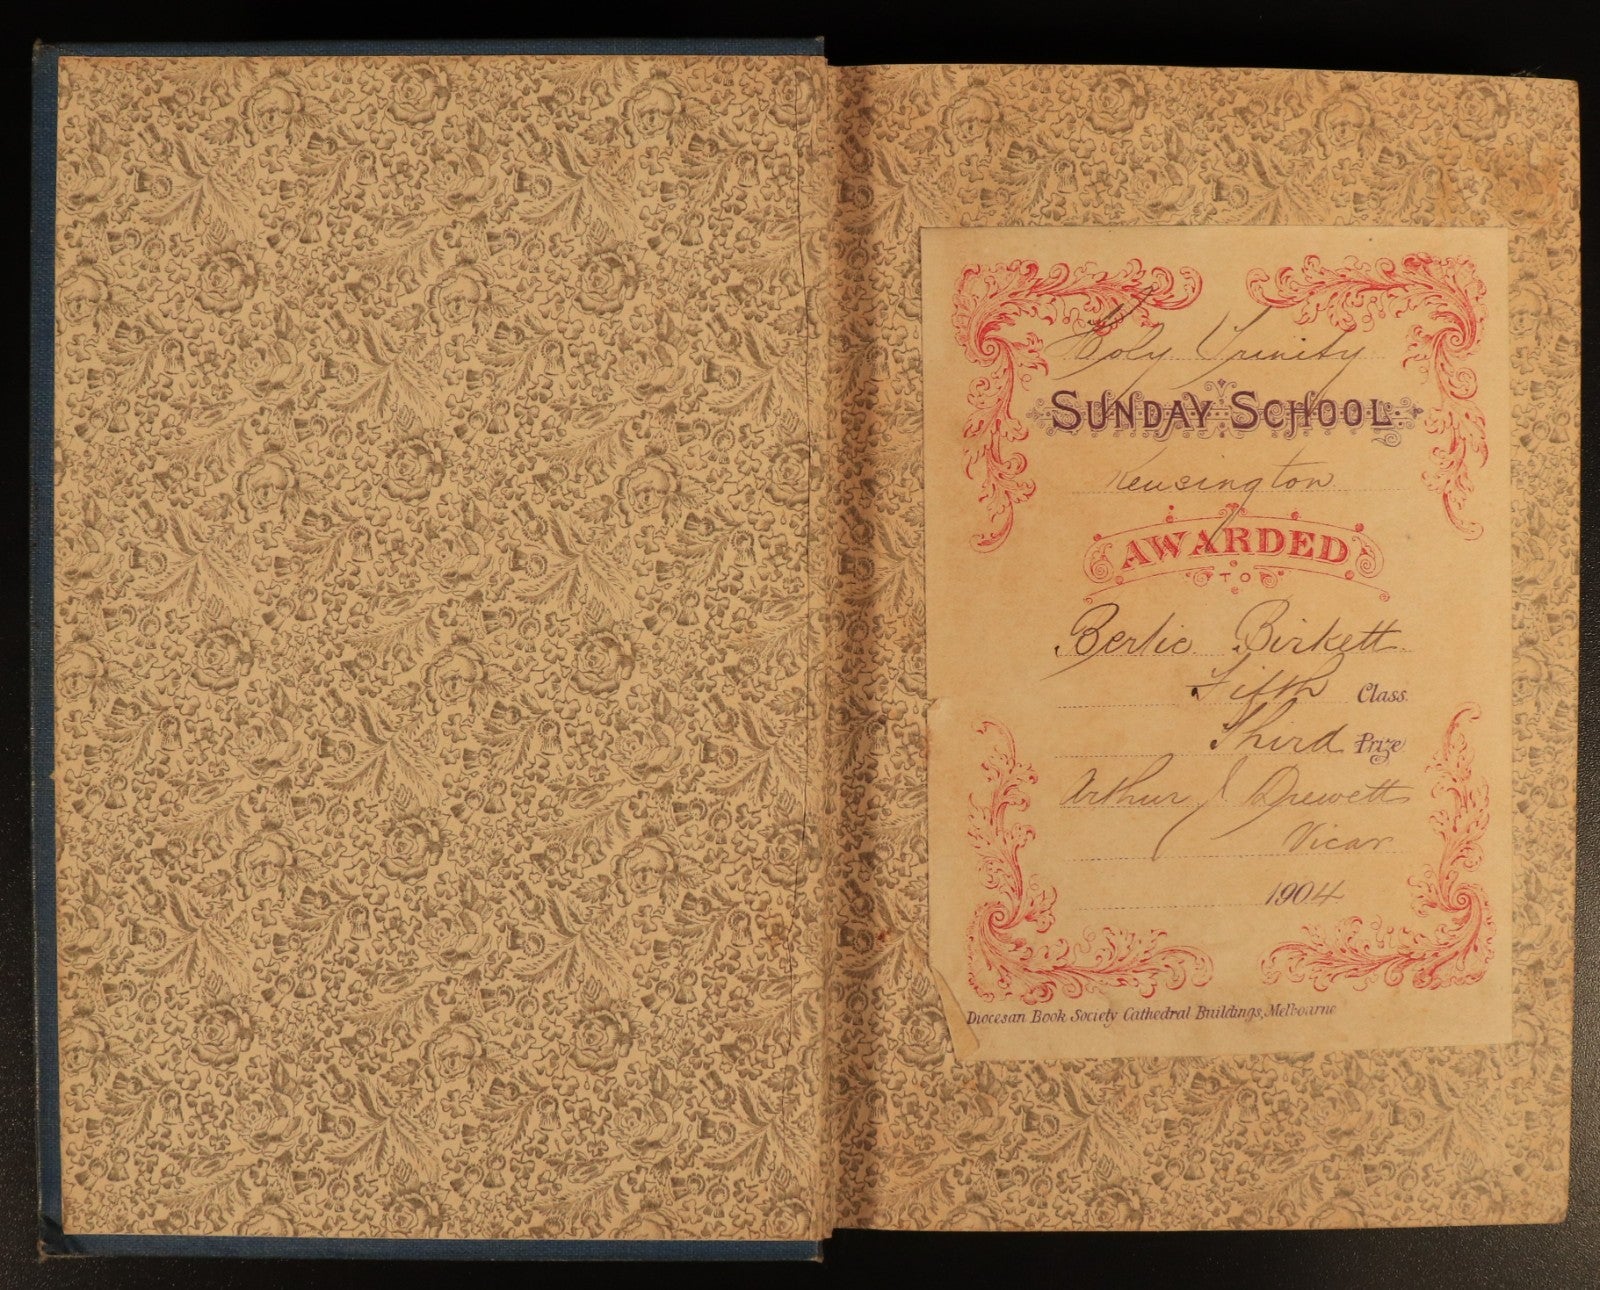 Holy Trinity
SUNDAY SCHOOL.
Kensington
AWARDED
TO
Bertie Birkett
Fifth Class.
Third Prize
Arthur J Drewett
Vicar
1904
Diocesan Book Society Cathedral Buildings, Melbourne